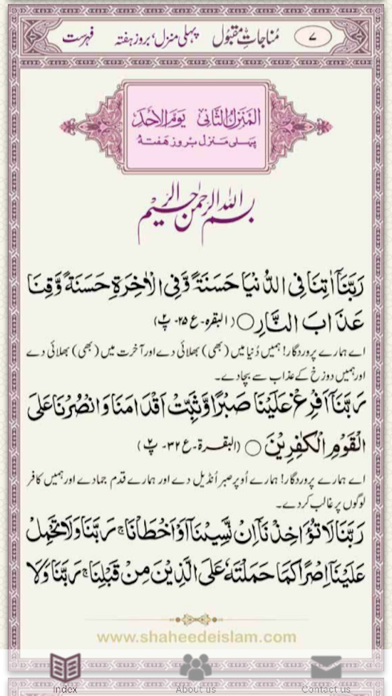 مُناجاتِ مقبُول پہلی منزل؛ بروز ہفتہ فہرست ۷
اَلمَنزِلُ الثَّانِی یَومُ الاَحَد
پہلی منزل بروز هفته
بسم الله الرحمن الرحيم
رَبَّنَآ اٰتِنَا فِی الدُّنْیَا حَسَنَةً وَّفِی الْاٰخِرَةِ حَسَنَةً وَّقِنَا
عَذَابَ النَّارِ ○ (البقره-ع ۲۵- پ۲)
اے ہمارے پروردگار! ہمیں دُنیا میں (بھی) بھلائی دے اور آخرت میں (بھی) بھلائی دے
اور ہمیں دوزخ کے عذاب سے بچادے۔
رَبَّنَآ اَفْرِغْ عَلَیْنَا صَبْرًا وَّثَبِّتْ اَقْدَامَنَا وَانْصُرْنَا عَلَی
الْقَوْمِ الْکٰفِرِیْنَ ○ (البقرة-ع ۳۲- پ۲)
اے ہمارے پروردگار! ہمارے اُوپر صبر اُنڈیل دے اور ہمارے قدم جمادے اور ہمیں کافر
لوگوں پر غالب کردے۔
رَبَّنَا لَا تُؤَاخِذْنَآ اِنْ نَّسِیْنَآ اَوْ اَخْطَاْنَا ۚ رَبَّنَا وَلَا تَحْمِلْ
عَلَیْنَآ اِصْرًا کَمَا حَمَلْتَهٗ عَلَی الَّذِیْنَ مِنْ قَبْلِنَا ۚ رَبَّنَا وَلَا
www.shaheedeislam.com
Index About us Contact us